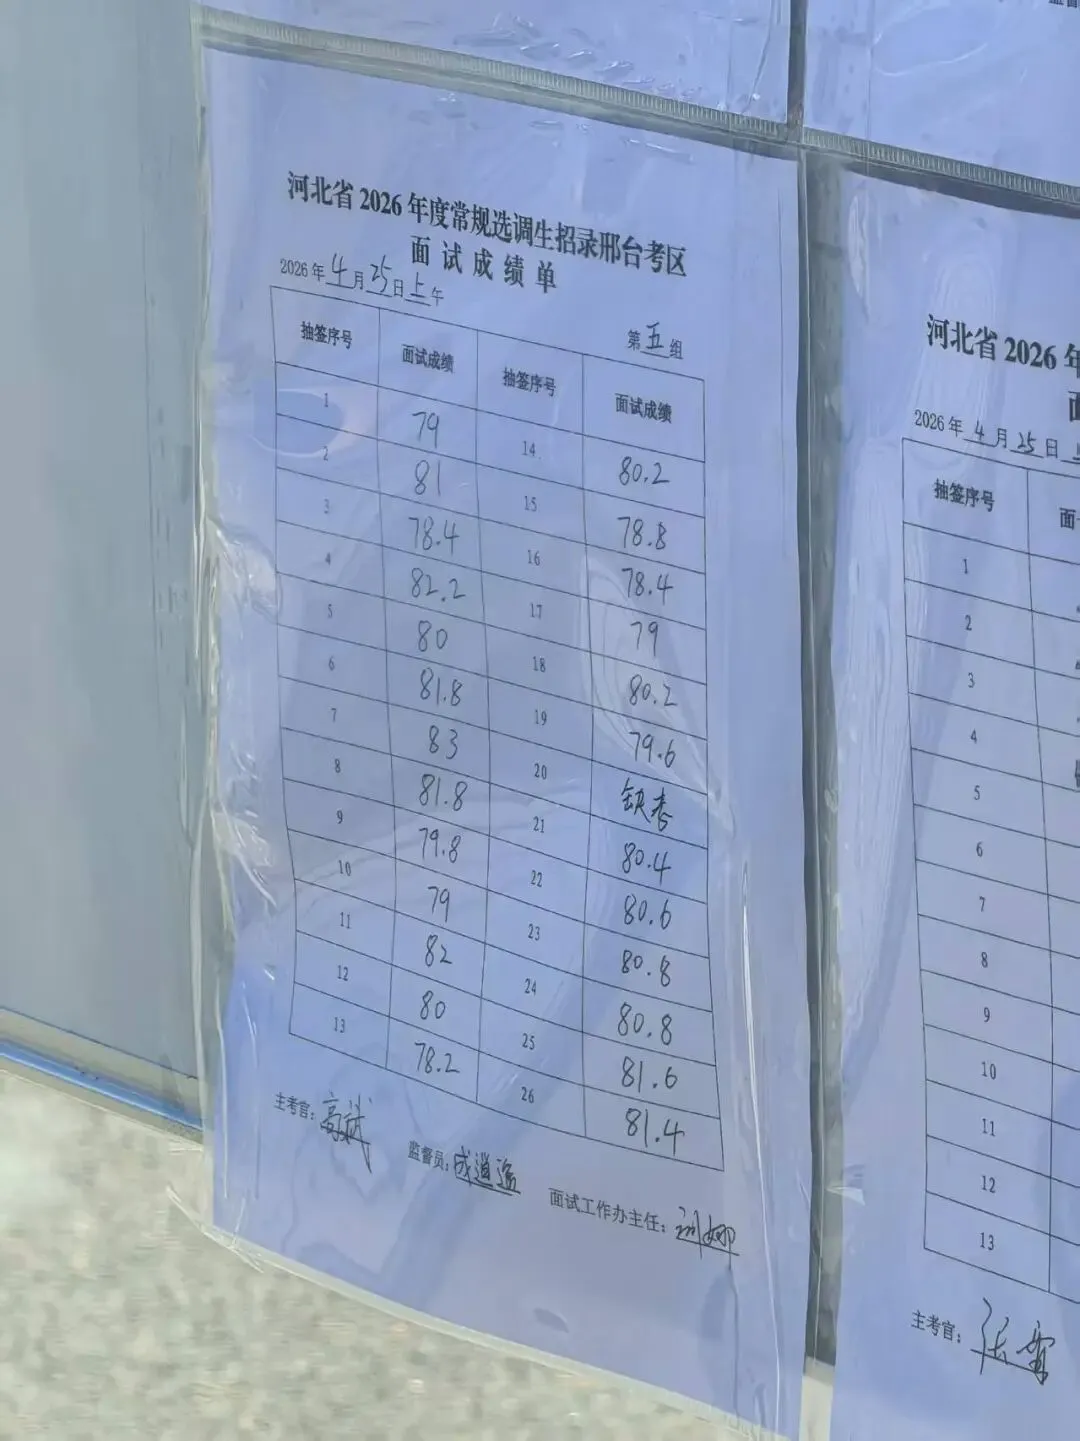 河北省 2026 年度常规选调生招录邢台考区
面试成绩单
2026 年 4 月 25 日 上 午
第 五 组
抽签序号 面试成绩 抽签序号 面试成绩
1 79 14 80.2
2 81 15 78.8
3 78.4 16 78.4
4 82.2 17 79
5 80 18 80.2
6 81.8 19 79.6
7 83 20 缺考
8 81.8 21 80.4
9 79.8 22 80.6
10 79 23 80.8
11 82 24 80.8
12 80 25 81.6
13 78.2 26 81.4
主考官：高斌 监督员：成逍遥 面试工作办主任：刘娜
河北省 2026 年
2026 年 4 月 25 日
抽签序号
1
2
3
4
5
6
7
8
9
10
11
12
13
主考官：张雷